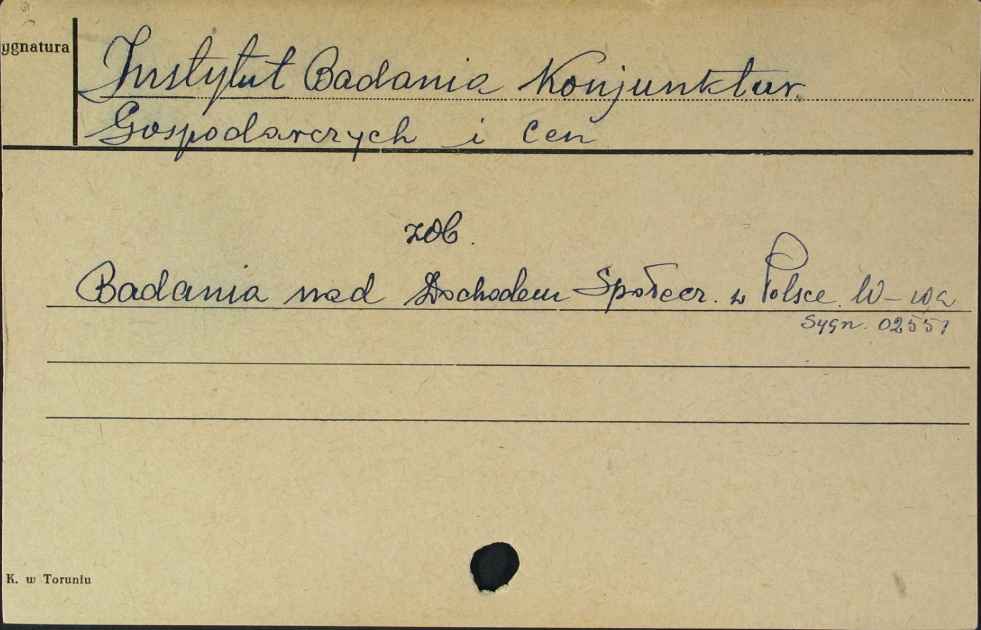 ygnatura
Instytut Badania Konjunktur
Gospodarczych i Cen
zob.
Badania nad Dochodem Społecz. w Polsce. W-wa
Sygn. 02551
K. w Toruniu